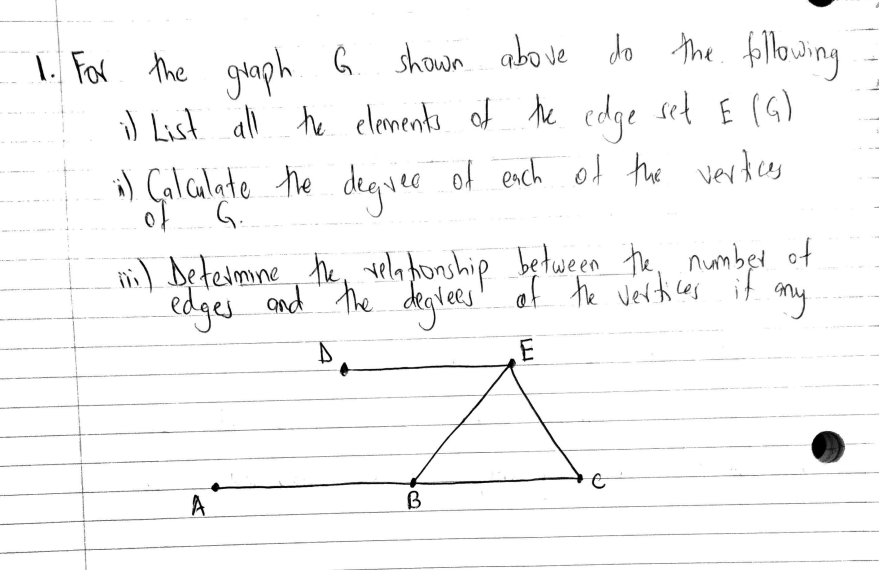 1. For the graph G shown above do the following
i) List all the elements of the edge set E (G)
ii) Calculate the degree of each of the vertices
of G.
iii.) Determine the relationship between the number of
edges and the degrees of the vertices if any
D E
A B C